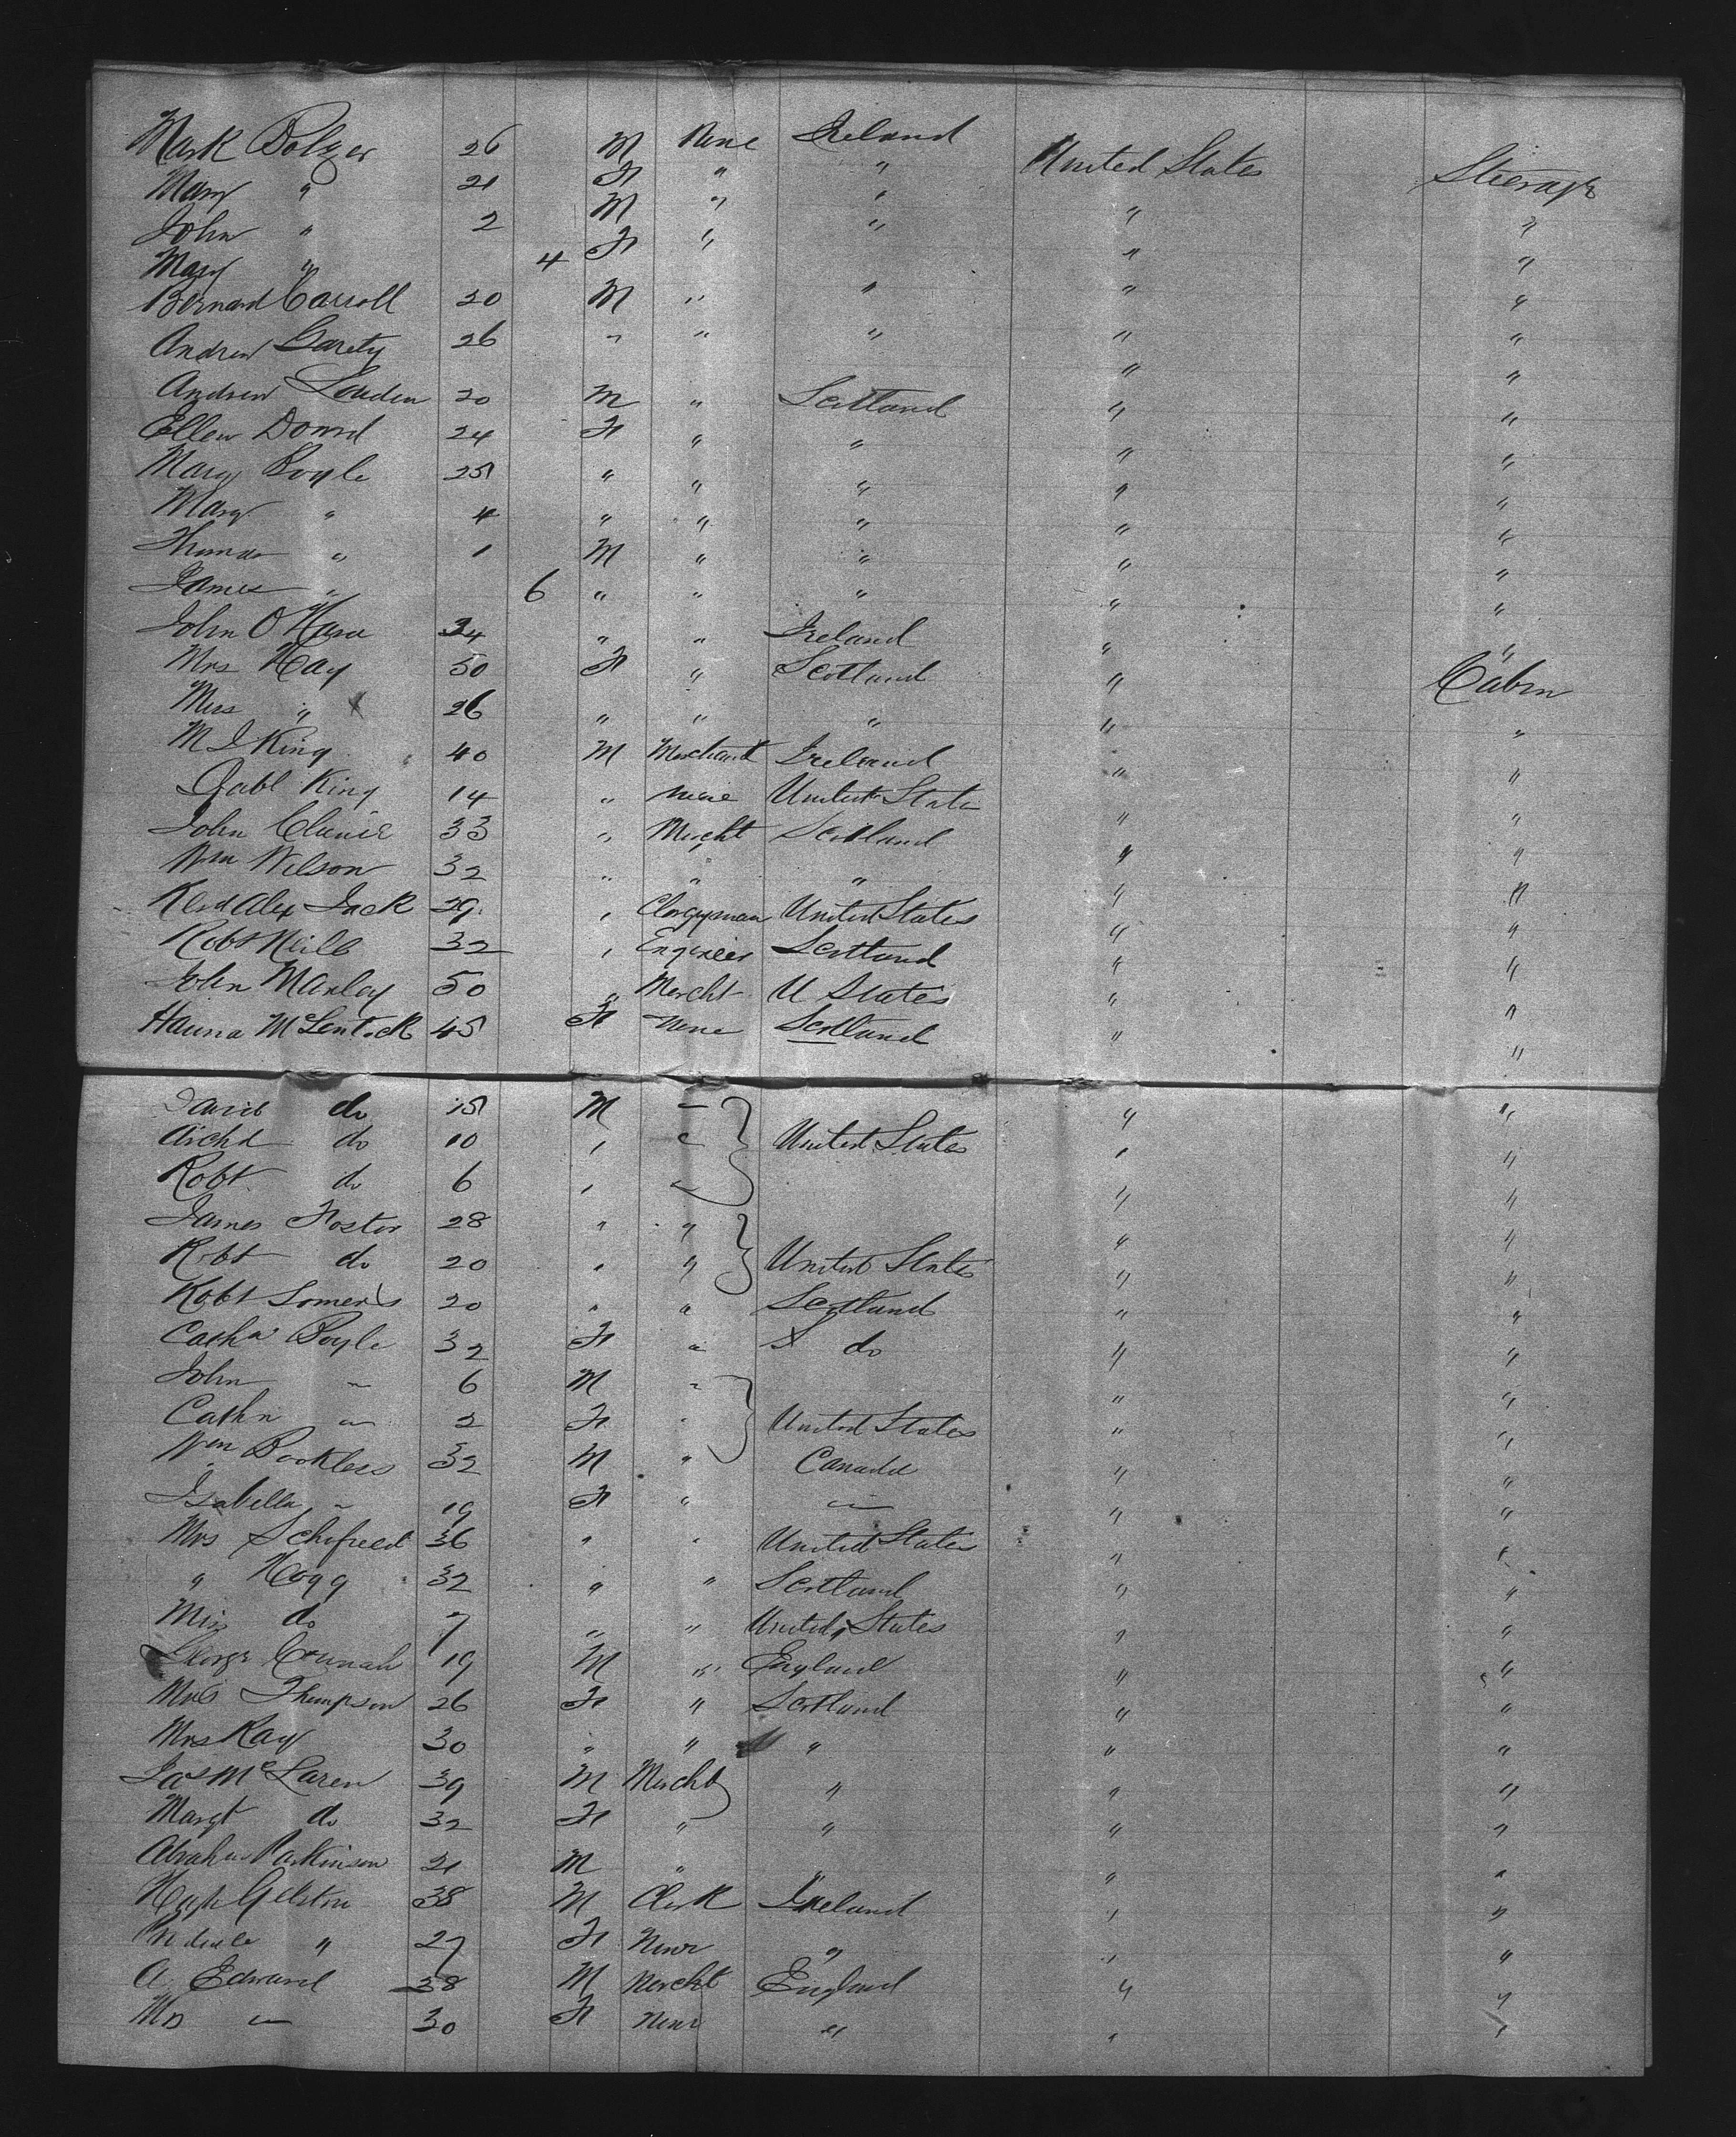 Mark Bolger 26 M None Ireland United States Steerage
Mary " 21 F " " " "
John " 2 M " " " "
Mary " 4 F " " " "
Bernard Carroll 20 M " " " "
Andrew Garety 26 " " " " "
Andrew Louden 20 M " Scotland " "
Ellen Dowd 24 F " " " "
Mary Boyle 25 " " " " "
Mary " 4 " " " " "
Thomas " 1 M " " " "
James " 6 " " " " "
John O'Hara 34 " " Ireland " "
Mrs Hay 50 F " Scotland " Cabin
Miss " 26 " " " " "
M J King 40 M Merchant Ireland " "
Gabl King 14 " None United States " "
John Clunie 33 " Mercht Scotland " "
Wm Wilson 32 " " " " "
Revd Alex Jack 29 " Clergyman United States " "
Robt Neill 32 " Engineer Scotland " "
John Manley 50 " Mercht U States " "
Hanna 45 F None Scotland " "
David do 15 M " " "
Archd do 10 " " United States " "
Robt do 6 " " " "
James Foster 28 " " " "
Robt do 20 " " United States " "
Robt Somers 20 " " Scotland " "
Cathn Boyle 32 F " do " "
John " 6 M " " "
Cathn " 2 F " United States " "
Wm Bookless 32 M " Canada " "
Isabella " 19 F " " " "
Mrs 36 " " United States " "
" Hogg 32 " " Scotland " "
Miss do 7 " " United States " "
George 19 M " England " "
Mrs Thompson 26 F " Scotland " "
Mrs Kay 30 " " " " "
Jas McLaren 39 M Mercht " " "
Margt do 32 F " " " "
Abraham Parkinson 21 M " " "
Hugh Gelston 38 M Clerk Ireland " "
" 27 F None " " "
A Edward 38 M Mercht England " "
Mrs " 30 F None " " "